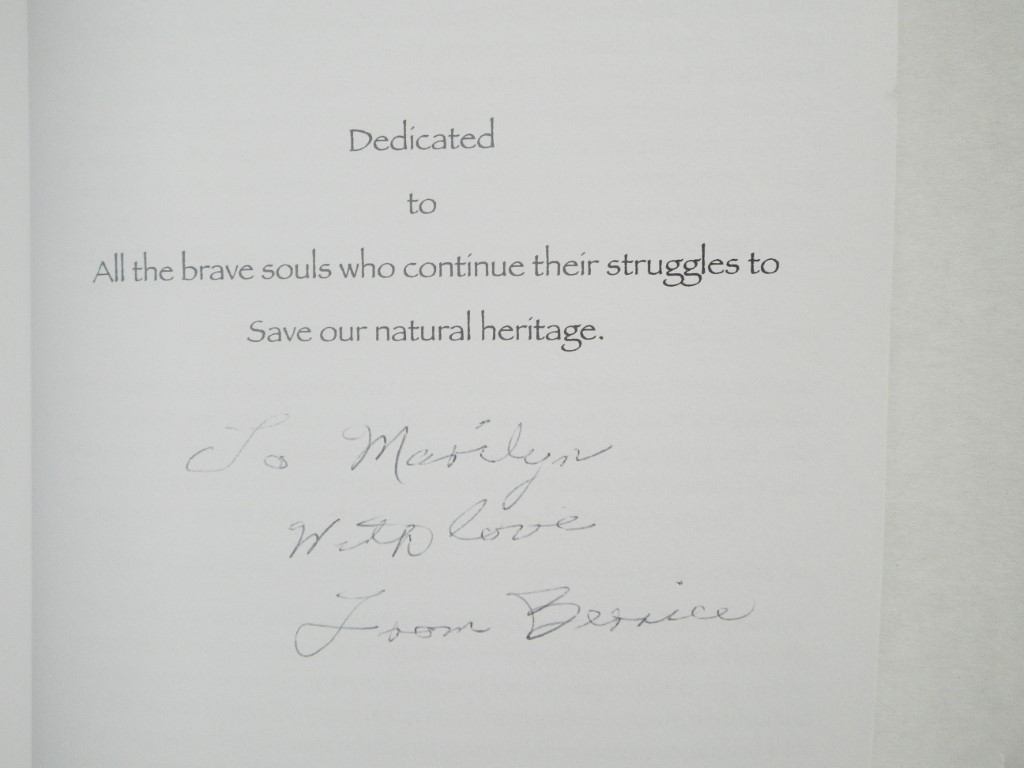 Dedicated
to
All the brave souls who continue their struggles to
Save our natural heritage.
To Marilyn
With love
From Bernice